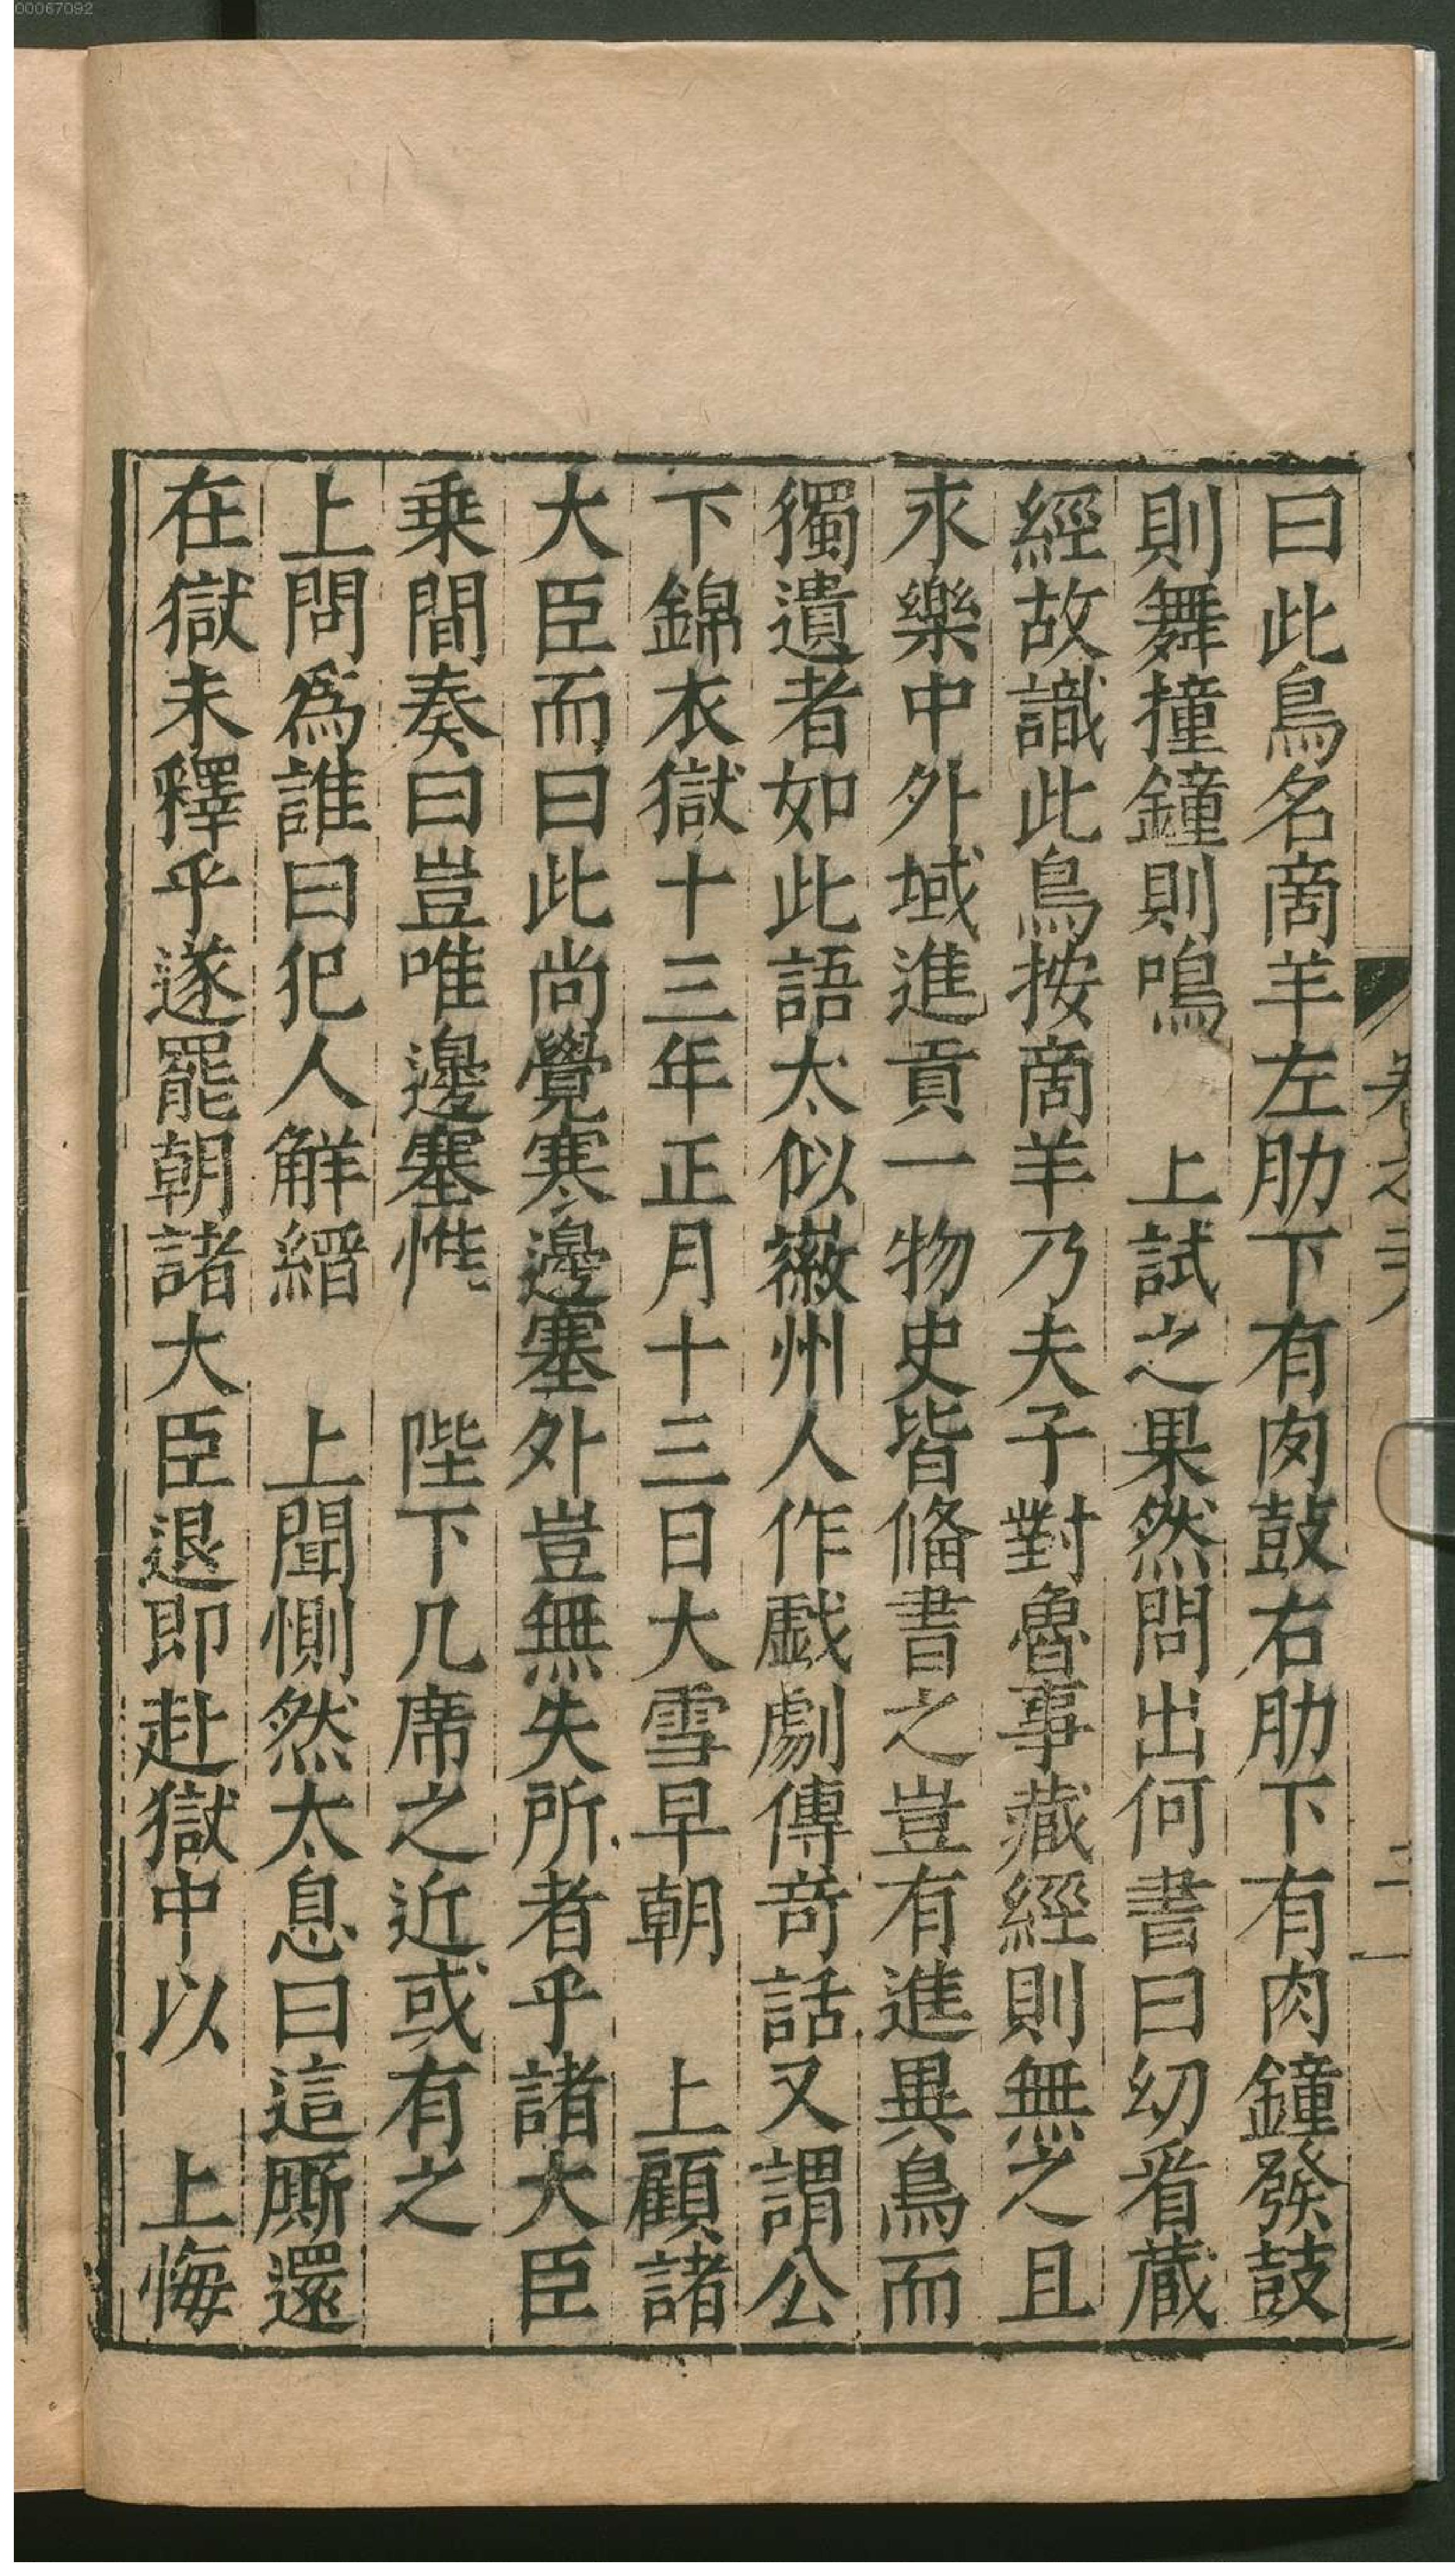 曰此鳥名啇羊左肋下有肉鼓右肋下有肉鐘發鼓
則舞撞鐘則鳴　上試之果然問出何書曰幼看蔵
經故識此鳥按啇羊乃夫子對魯事藏經則無之且
永樂中外域進貢一物史皆偹書之豈有進異鳥而
獨遺者如此語太似徽州人作戯劇傳奇話又謂公
下錦衣獄十三年正月十三日大雪早朝　上顧諸
大臣而曰此尚覺寒邊塞外豈無失所者乎諸大臣
乗間奏曰豈唯邊塞惟　陛下几席之近或有之
上問爲誰曰犯人解縉　上聞惻然太息曰這厮還
在獄未釋乎遂罷朝諸大臣退即赴獄中以　上悔
00067092